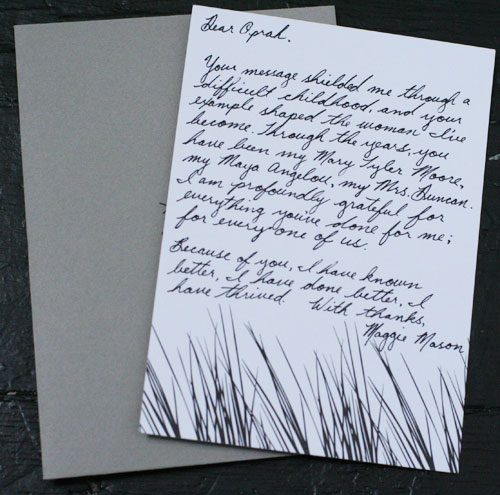 Dear Oprah,
Your message shielded me through a
difficult childhood, and your
example shaped the woman I've
become. Through the years, you
have been my Mary Tyler Moore,
my Maya Angelou, my Mrs. Duncan.
I am profoundly grateful for
everything you've done for me;
for everyone of us.
Because of you, I have known
better, I have done better, I
have thrived. With thanks,
Maggie Mason